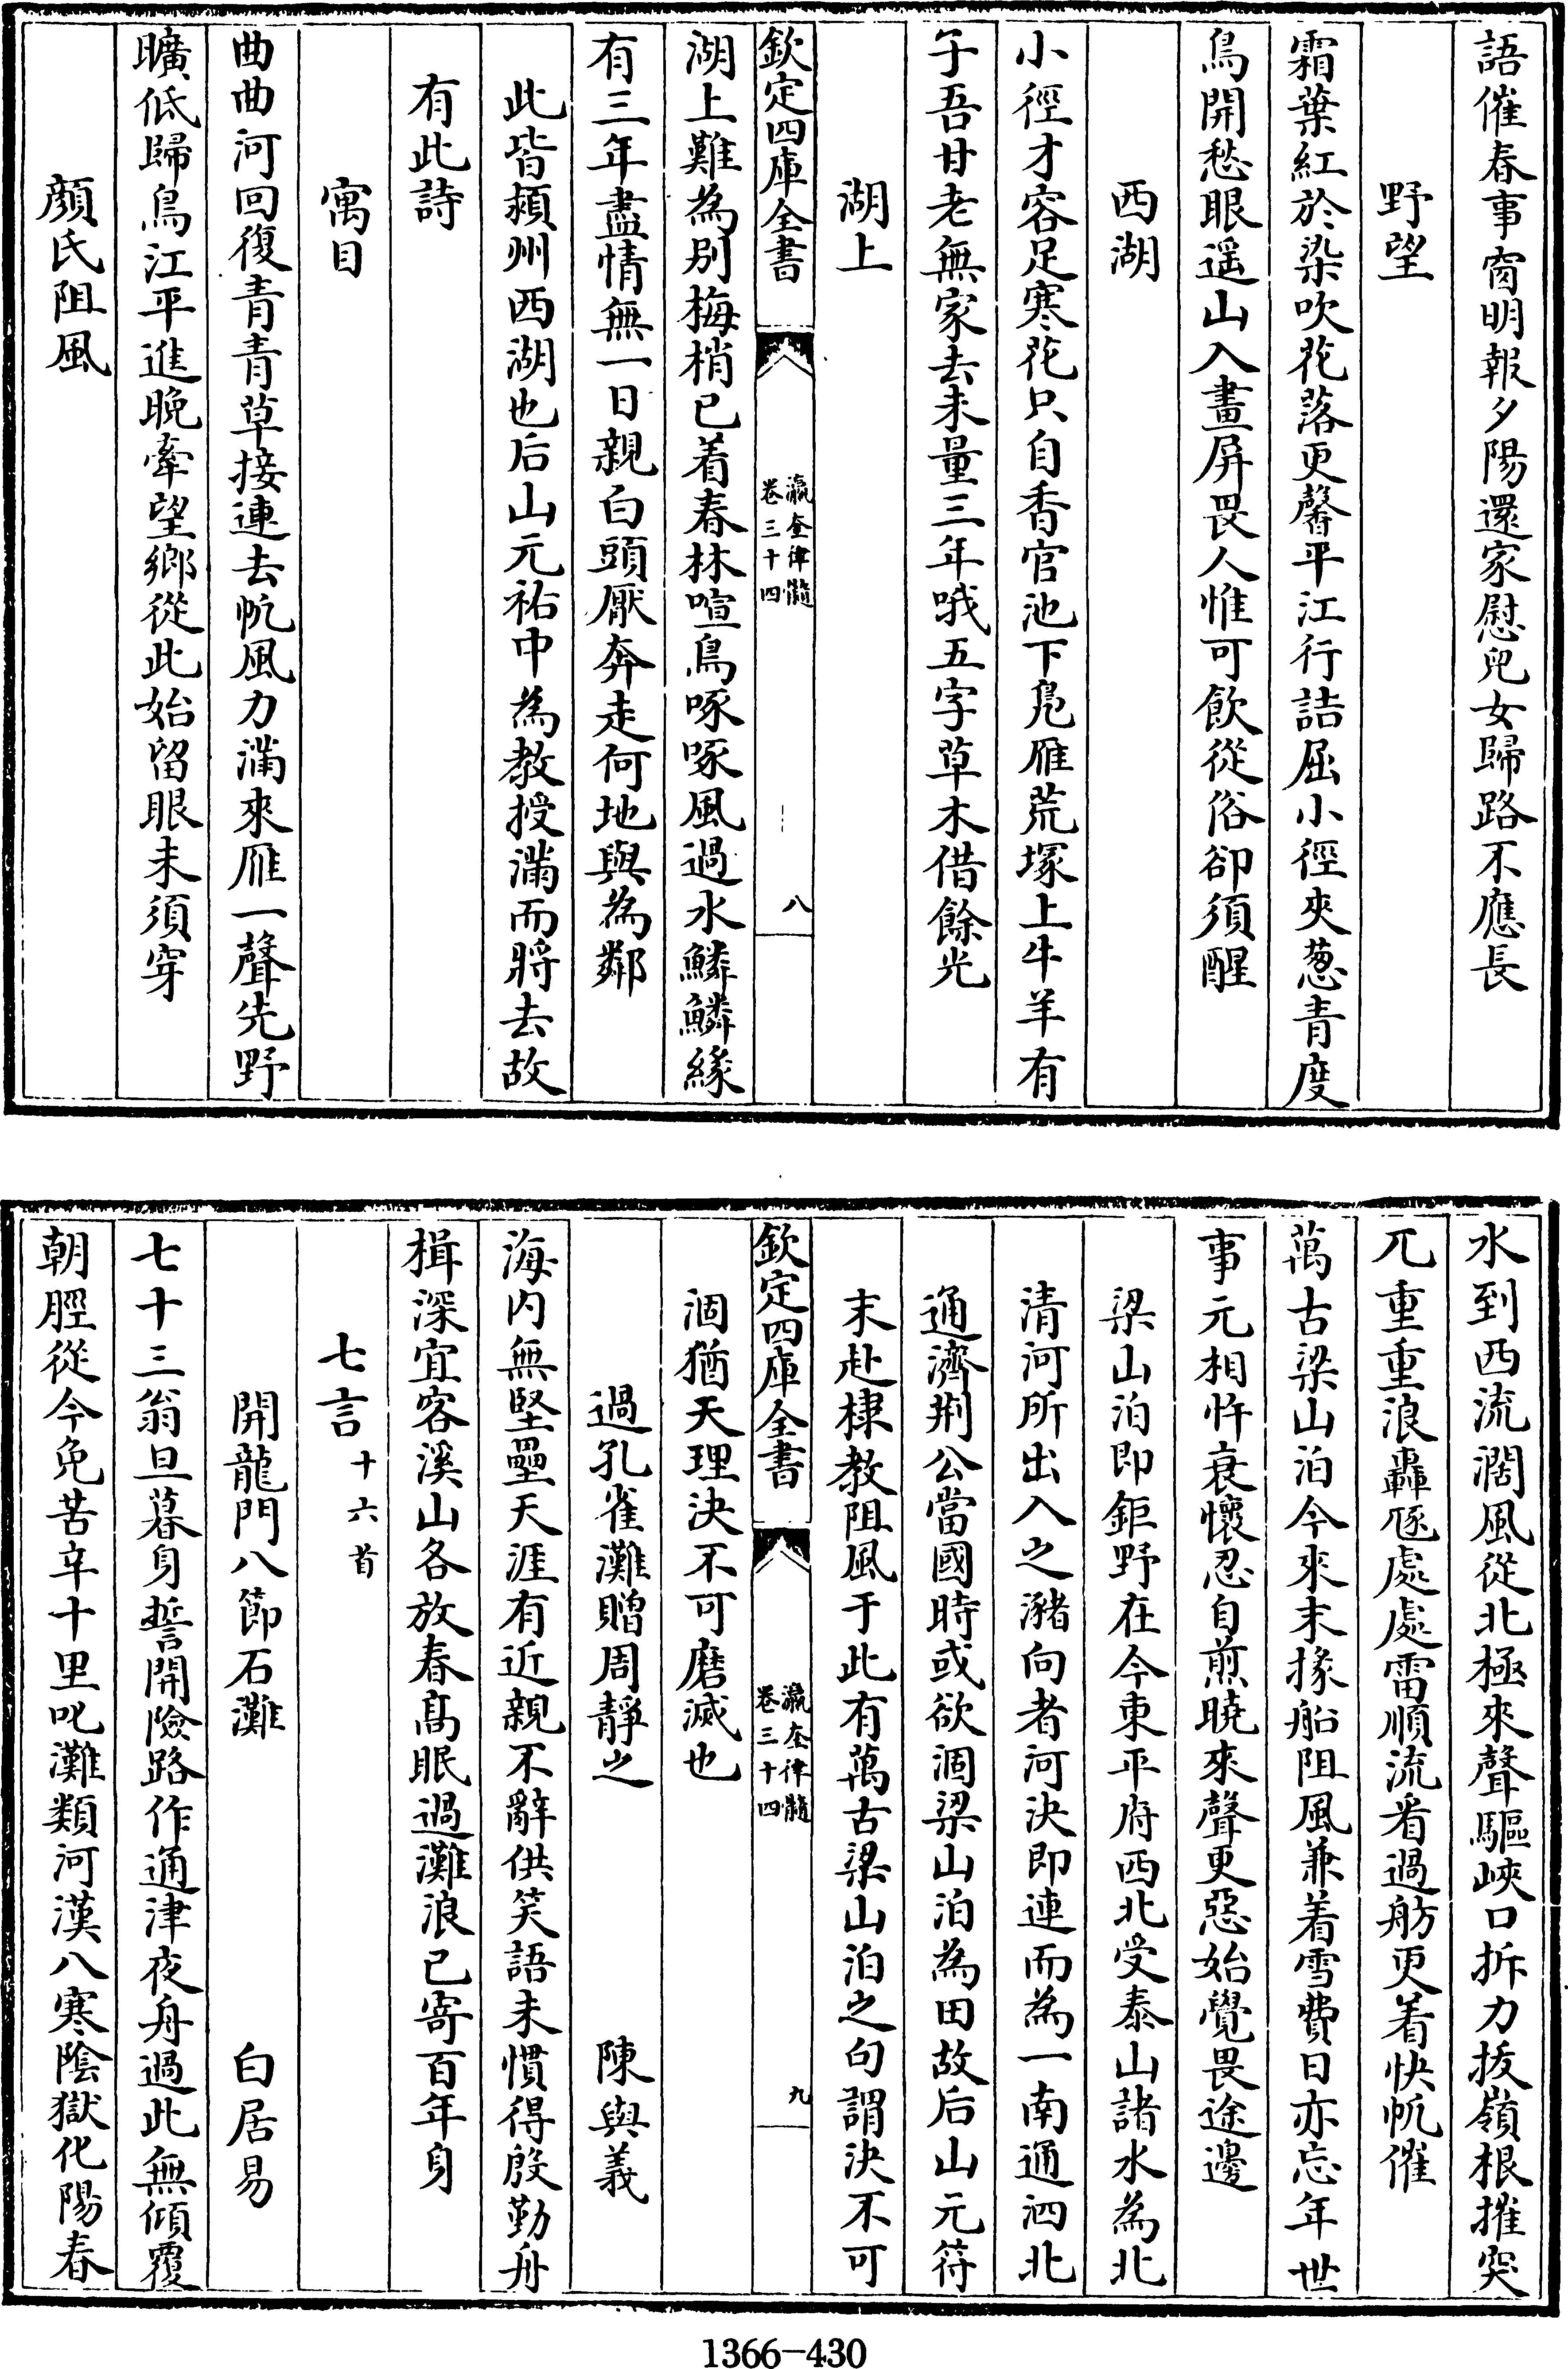 語催春事窗明報夕陽還家慰兒女歸路不應長
野望
霜葉紅於染吹花落更馨平江行詰屈小徑夾葱青度
鳥開愁眼遥山入畫屏畏人惟可飲從俗卻須醒
西湖
小徑才容足寒花只自香官池下鳧雁荒塚上牛羊有
子吾甘老無家去未量三年哦五字草木借餘光
湖上
欽定四庫全書
瀛奎律髓
卷三十四
八
湖上難為别梅梢已着春林喧鳥啄啄風過水鱗鱗緣
有三年盡情無一日親白頭厭奔走何地與為鄰
此皆潁州西湖也后山元祐中為教授滿而將去故
有此詩
寓目
曲曲河回復青青草接連去帆風力滿來雁一聲先野
曠低歸鳥江平進晚牽望鄉從此始留眼未須穿
顔氏阻風
水到西流濶風從北極來聲驅峽口拆力拔嶺根摧突
兀重重浪轟豗處處雷順流看過舫更着快帆催
萬古梁山泊今來末掾船阻風兼着雪費日亦忘年世
事元相忤衰懷忍自煎曉來聲更惡始覺畏途邊
梁山泊即鉅野在今東平府西北受泰山諸水為北
清河所出入之瀦向者河決即連而為一南通泗北
通濟荆公當國時或欲涸梁山泊為田故后山元符
末赴棣教阻風于此有萬古梁山泊之句謂決不可
欽定四庫全書
瀛奎律髓
卷三十四
九
涸猶天理決不可磨滅也
過孔雀灘贈周靜之 陳與義
海内無堅壘天涯有近親不辭供笑語未慣得殷勤舟
楫深宜客溪山各放春髙眠過灘浪已寄百年身
七言 十六首
開龍門八節石灘 白居易
七十三翁旦暮身誓開險路作通津夜舟過此無傾覆
朝脛從今免苦辛十里叱灘類河漢八寒隂獄化陽春
1366-430